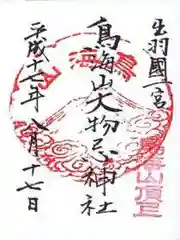 出羽國一宮
鳥海山頂上
鳥海山大物忌神社
平成十七年八月十七日